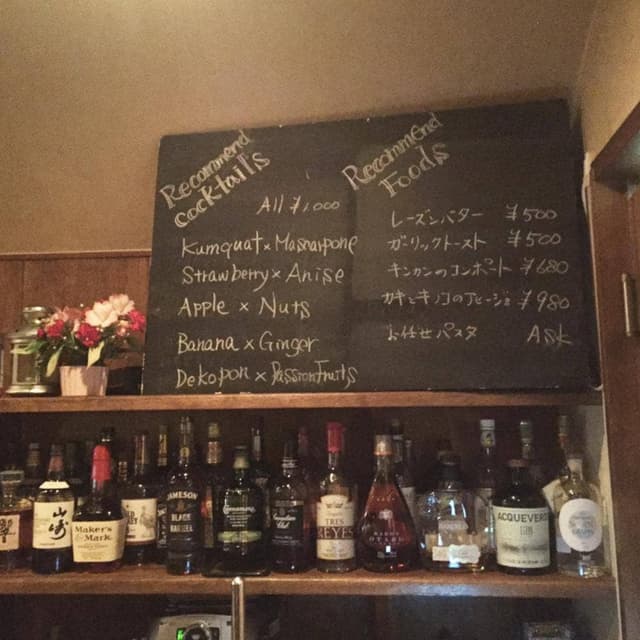 Recommend
cocktails
All ¥1,000
Kumquat × Mascarpone
Strawberry × Anise
Apple × Nuts
Banana × Ginger
Dekopon × Passionfruits
Recommend
Foods
レーズンバター ¥500
ガーリックトースト ¥500
キンカンのコンポート ¥680
カキとキノコのアヒージョ ¥980
お任せパスタ Ask
響
山崎
Maker's
Mark
JAMESON
BLACK
BARREL
Connemara
TRES
REYES
ACQUEVERDI
GIN